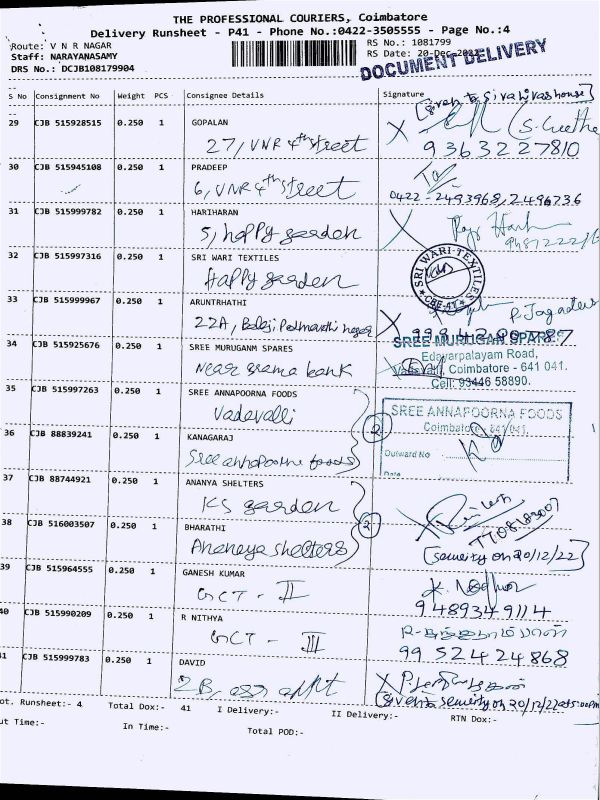 THE PROFESSIONAL COURIERS, Coimbatore
Delivery Runsheet - P41 - Phone No.:0422-3505555 - Page No.:4
Route: V N R NAGAR
RS No.: 1081799
Staff: NARAYANASAMY
RS Date: 20-Dec-2022
DRS No.: DCJB108179904
DOCUMENT DELIVERY
S No Consignment No Weight PCS Consignee Details Signature
29 CJB 515928515 0.250 1 GOPALAN
27, VNR 4th street
9363227810
30 CJB 515945108 0.250 1 PRADEEP
6, VNR 4th street
0422-2493968, 2496736
31 CJB 515999782 0.250 1 HARIHARAN
5, happy garden
32 CJB 515997316 0.250 1 SRI WARI TEXTILES
Happy garden
SRI WARI TEXTILES
CBE-41
33 CJB 515999967 0.250 1 ARUNTRHATHI
22A, Balaji Padmavathi nagar
34 CJB 515925676 0.250 1 SREE MURUGANM SPARES
Near grama bank
SREE MURUGAN SPARES
Edayarpalayam Road,
Vadavalli, Coimbatore - 641 041.
Cell: 93446 58890.
35 CJB 515997263 0.250 1 SREE ANNAPOORNA FOODS
Vadavalli
SREE ANNAPOORNA FOODS
Coimbatore - 641 041.
36 CJB 88839241 0.250 1 KANAGARAJ
Sree annapoorna foods
2
Outward No
Date
37 CJB 88744921 0.250 1 ANANYA SHELTERS
KS garden
38 CJB 516003507 0.250 1 BHARATHI
Ananaya shelters
2
[security on 20/12/22]
39 CJB 515964555 0.250 1 GANESH KUMAR
GCT - II
9489349114
40 CJB 515990209 0.250 1 R NITHYA
GCT - III
9952424868
41 CJB 515999783 0.250 1 DAVID
2B,
(given to security on 20/12/22 at 5:00PM
Tot. Runsheet:- 4 Total Dox:- 41 I Delivery:- II Delivery:- RTN Dox:-
Out Time:- In Time:- Total POD:-